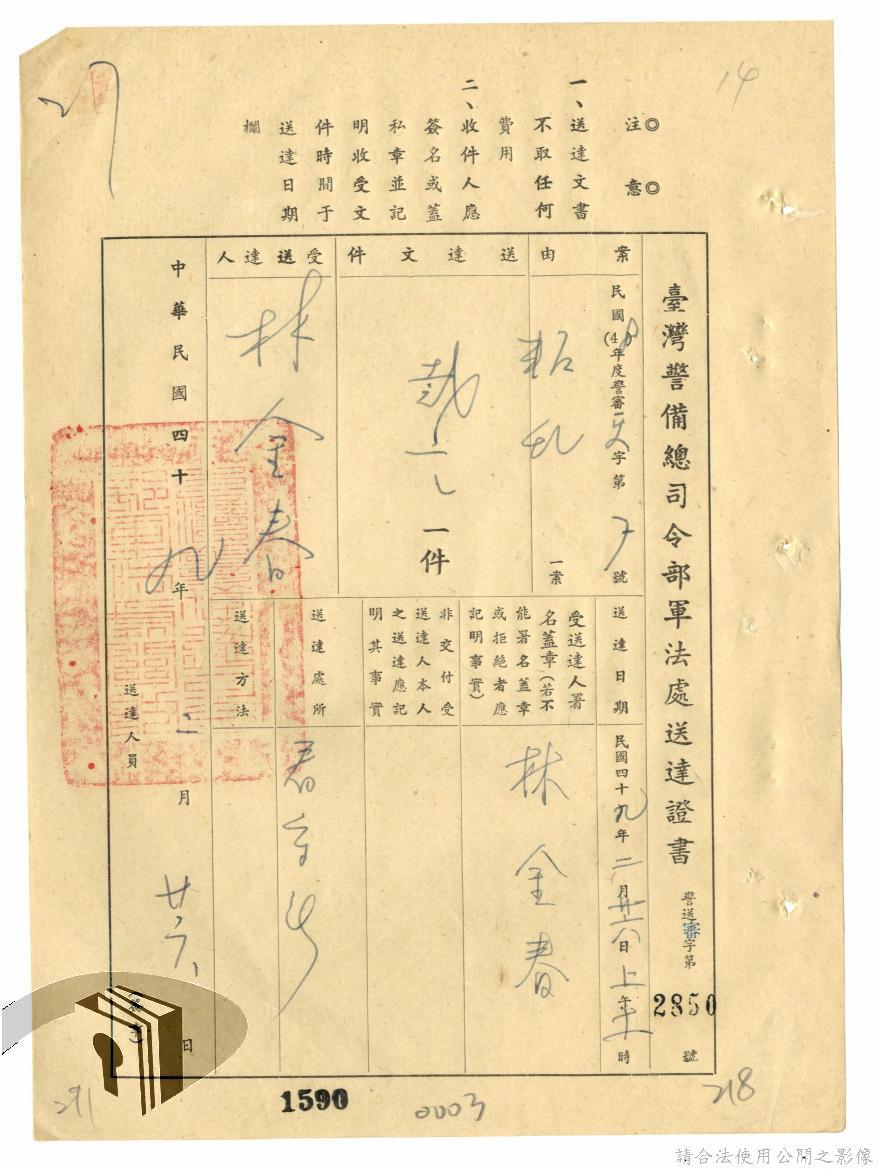 14
注◎
意◎
一、送達文書
不取任何
費用
二、收件人應
簽名或蓋
私章並記
明收受文
件時間于
送達日期
欄
臺灣警備總司令部軍法處送達證書
警送審字第
2850
號
案由
民國(48)年度警審更字第
號
叛亂
一案
送達文件
裁定
一件
受送達人
林金春
送達日期
民國四十九年二月廿六日上午十時
受送達人署
名蓋章(若不
能署名蓋章
或拒絕者應
記明事實)
林金春
非交付受
送達人本人
之送達應記
明其事實
送達處所
看守所
送達方法
中華民國四十九年二月廿六日
送達人員
1590
0003
218
291
請合法使用公開之影像